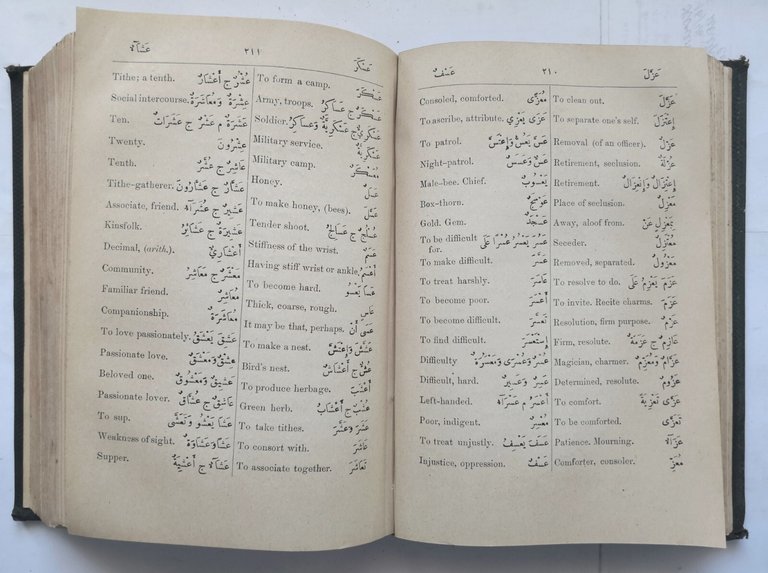 عَزَلَ ٢١٠ عَسْفٌ
To clean out. عَزَّلَ
To separate one's self. إِعْتَزَلَ
Removal (of an officer). عَزْلٌ
Retirement, seclusion. عُزْلَةٌ
Retirement. إِعْتِزَالٌ وَٱنْعِزَالٌ
Place of seclusion. مَعْزِلٌ
Away, aloof from. بِمَعْزِلٍ عَنْ
Seceder. مُعْتَزِلٌ
Removed, separated. مَعْزُولٌ
To resolve to do. عَزَمَ يَعْزِمُ عَلَى
To invite. Recite charms. عَزَمَ
Resolution, firm purpose. عَزْمٌ
Firm, resolute. عَازِمٌ ج عَزَمَةٌ
Magician, charmer. عَزَّامٌ وَمُعَزِّمٌ
Determined, resolute. عَزُومٌ
To comfort. عَزَّى تَعْزِيَةً
To be comforted. تَعَزَّى
Patience. Mourning. عَزَاءٌ
Comforter, consoler. مُعَزٍّ
Consoled, comforted. مُعَزًّى
To ascribe, attribute. عَزَى يَعْزِي
To patrol. عَسَّ يَعُسُّ وَٱعْتَسَّ
Night-patrol. عَسٌّ وَعَسَسٌ
Male-bee. Chief. يَعْسُوبٌ
Box-thorn. عَوْسَجٌ
Gold. Gem. عَسْجَدٌ
To be difficult for. عَسُرَ يَعْسُرُ عُسْرًا عَلَى
To make difficult. عَسَّرَ
To treat harshly. عَاسَرَ
To become poor. أَعْسَرَ
To become difficult. تَعَسَّرَ
To find difficult. إِسْتَعْسَرَ
Difficulty عُسْرٌ وَعُسْرَى وَمَعْسَرَةٌ
Difficult, hard. عَسِرٌ وَعَسِيرٌ
Left-handed. أَعْسَرُ م عَسْرَاءُ
Poor, indigent. مُعْسِرٌ
To treat unjustly. عَسَفَ يَعْسِفُ
Injustice, oppression. عَسْفٌ
عَسْكَرَ ٢١١ عَشَاءٌ
To form a camp. عَسْكَرَ
Army, troops. عَسْكَرٌ ج عَسَاكِرُ
Soldier. عَسْكَرِيٌّ ج عَسْكَرِيَّةٌ وَعَسَاكِرُ
Military service. عَسْكَرِيَّةٌ
Military camp. مُعَسْكَرٌ
Honey. عَسَلٌ
To make honey, (bees). عَسَّلَ
Tender shoot. عُسْلُجٌ ج عَسَالِجُ
Stiffness of the wrist. عَسَمٌ
Having stiff wrist or ankle. أَعْسَمُ
To become hard. عَسَا يَعْسُو
Thick, coarse, rough. عَاسٍ
It may be that, perhaps. عَسَى أَنْ
To make a nest. عَشَّشَ وَٱعْتَشَّ
Bird's nest. عُشٌّ ج أَعْشَاشٌ
To produce herbage. أَعْشَبَ
Green herb. عُشْبٌ ج أَعْشَابٌ
To take tithes. عَشَرَ وَعَشَّرَ
To consort with. عَاشَرَ
To associate together. تَعَاشَرَ
Tithe; a tenth. عُشْرٌ ج أَعْشَارٌ
Social intercourse. عِشْرَةٌ وَمُعَاشَرَةٌ
Ten. عَشَرَةٌ م عَشْرٌ ج عَشَرَاتٌ
Twenty. عِشْرُونَ
Tenth. عَاشِرٌ ج عُشَّرٌ
Tithe-gatherer. عَشَّارٌ ج عَشَّارُونَ
Associate, friend. عَشِيرٌ ج عُشَرَاءُ
Kinsfolk. عَشِيرَةٌ ج عَشَايِرُ
Decimal, (arith.). أَعْشَارِيٌّ
Community. مَعْشَرٌ ج مَعَاشِرُ
Familiar friend. مُعَاشِرٌ
Companionship. مُعَاشَرَةٌ
To love passionately. عَشِقَ يَعْشَقُ
Passionate love. عِشْقٌ وَمَعْشَقٌ
Beloved one. عَشِيقٌ وَمَعْشُوقٌ
Passionate lover. عَاشِقٌ ج عُشَّاقٌ
To sup. عَشَا يَعْشُو وَتَعَشَّى
Weakness of sight. عَشًا وَعَشَاوَةٌ
Supper. عَشَاءٌ ج أَعْشِيَةٌ